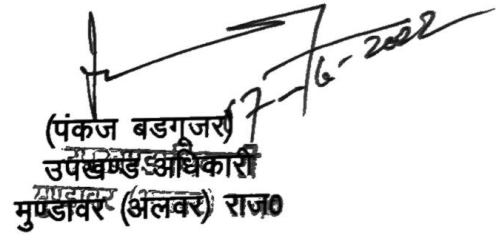 17-6-2022
(पंकज बडगूजर)
उपखण्ड अधिकारी
मुण्डावर (अलवर) राज0